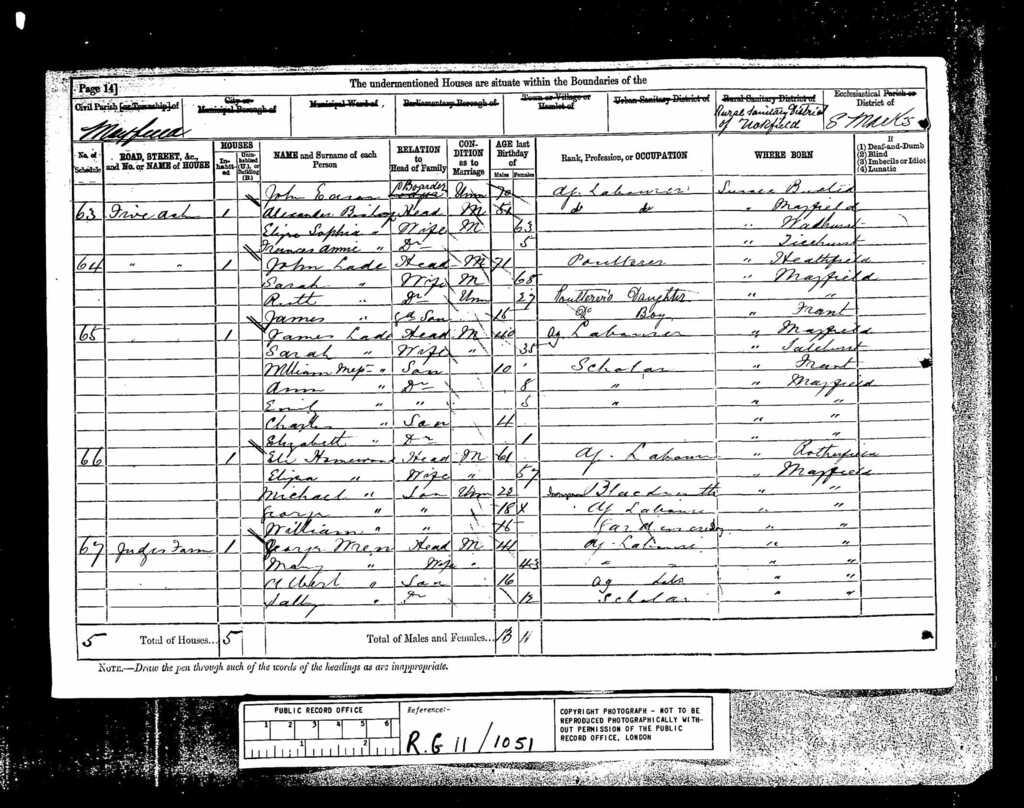 Page 14] The undermentioned Houses are situate within the Boundaries of the
Civil Parish [or Township] of
City or Municipal Borough of
Municipal Ward of
Parliamentary Borough of
Town or Village or Hamlet of
Urban Sanitary District of
Rural Sanitary District of
Ecclesiastical Parish or District of
Mayfield Rural Sanitary District of Uckfield S Marks
No. of Schedule
ROAD, STREET, &c., and No. or NAME of HOUSE
HOUSES
Inhabited
Uninhabited (U.), or Building (B.)
NAME and Surname of each Person
RELATION to Head of Family
CONDITION as to Marriage
AGE last Birthday of
Males Females
Rank, Profession, or OCCUPATION
WHERE BORN
If
(1) Deaf-and-Dumb
(2) Blind
(3) Imbecile or Idiot
(4) Lunatic
John Boarder Unm 70 Ag. Labourer Sussex
63 Five Ash 1 Alexander Bishop Head M do do " Mayfield
Eliza Sophia " Wife M 63 " Wadhurst
Frances Annie " Dr 5 " Ticehurst
64 " " 1 John Lade Head M 71 Poulterer " Heathfield
Sarah " Wife M 68 " Mayfield
Ruth " Dr Unm 27 Poulterer's Daughter " "
James " Gd Son 15 Do Boy " Frant
65 1 James Lade Head M 40 Ag Labourer " Mayfield
Sarah " Wife " 35 "
William " Son 10 Scholar " Frant
Ann " Dr 8 " " Mayfield
Emily " " 5 " " "
Charles " Son 4 " "
Elizabeth " Dr 1 " "
66 1 Eli Homewood Head M 61 Ag. Labourer " Rotherfield
Eliza " Wife " 57 " Mayfield
Michael " Son Unm 22 Blacksmith " "
George " " 18 Ag Labourer " "
William " " 16 " "
67 Judges Farm 1 George Wren Head M 41 Ag. Labourer " "
Mary " Wife " 43 " " "
Albert " Son 16 Ag Lab " "
Sally " Dr 12 Scholar " "
5 Total of Houses... 5 Total of Males and Females... 13 11
NOTE.—Draw the pen through such of the words of the headings as are inappropriate.
PUBLIC RECORD OFFICE
1 2 3 4 5 6
1 2
Reference:-
R.G 11/1051
COPYRIGHT PHOTOGRAPH - NOT TO BE
REPRODUCED PHOTOGRAPHICALLY WITH-
OUT PERMISSION OF THE PUBLIC
RECORD OFFICE, LONDON